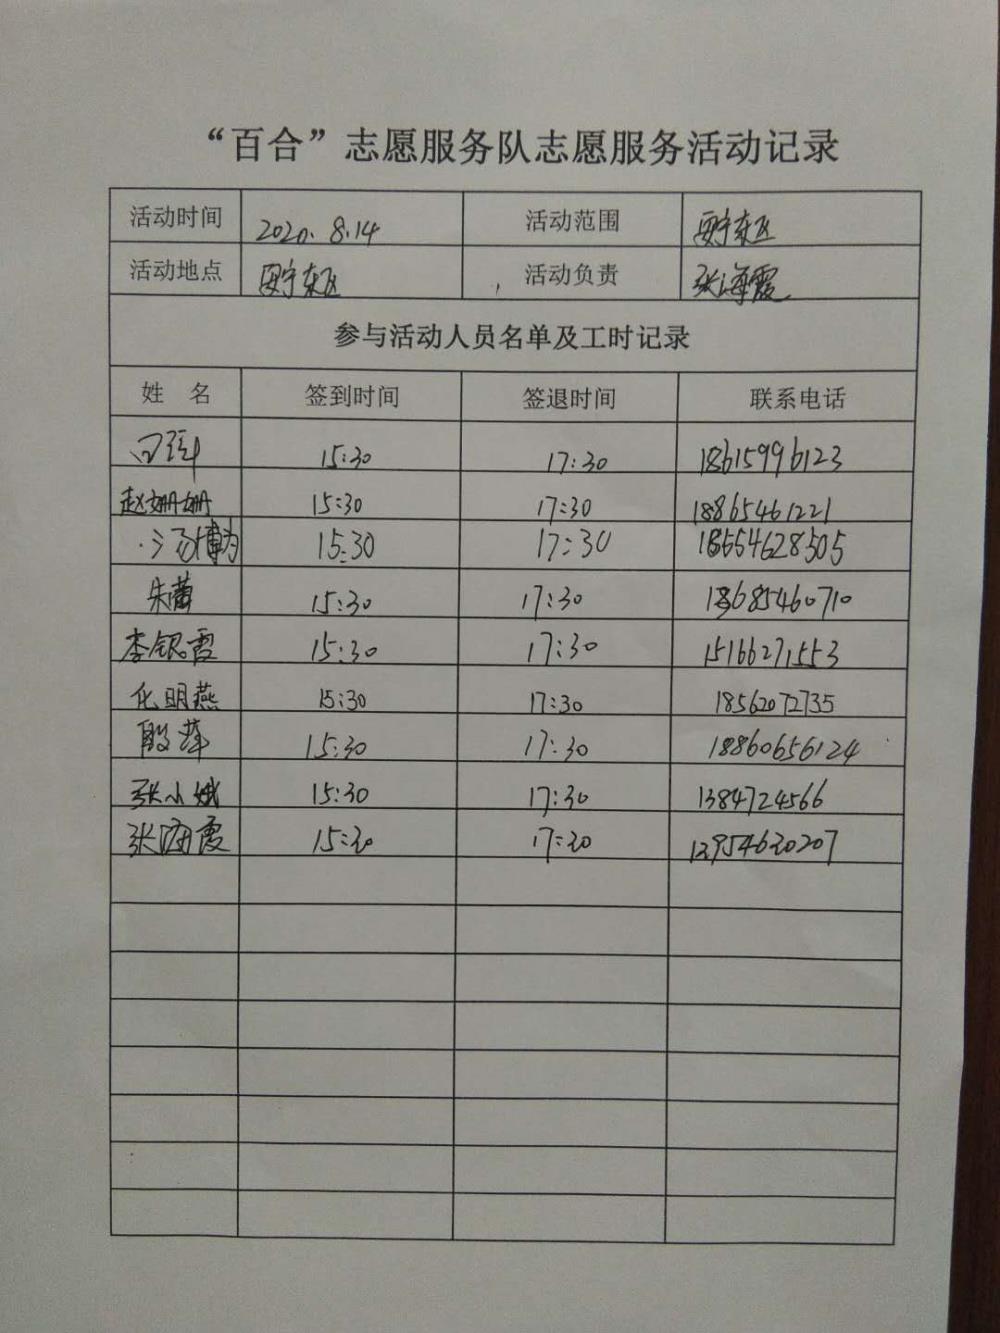 “百合”志愿服务队志愿服务活动记录
活动时间 2020.8.14 活动范围 东区
活动地点 东区 活动负责 张海霞
参与活动人员名单及工时记录
姓 名 签到时间 签退时间 联系电话
15:30 17:30 18615996123
赵姗姗 15:30 17:30 18865461221
汤博为 15:30 17:30 18554628505
朱蕾 15:30 17:30 18685460710
李银霞 15:30 17:30 15166271553
化明燕 15:30 17:30 18562072735
殷萍 15:30 17:30 18860656124
张小娥 15:30 17:30 1384724566
张海霞 15:30 17:30 13954630207